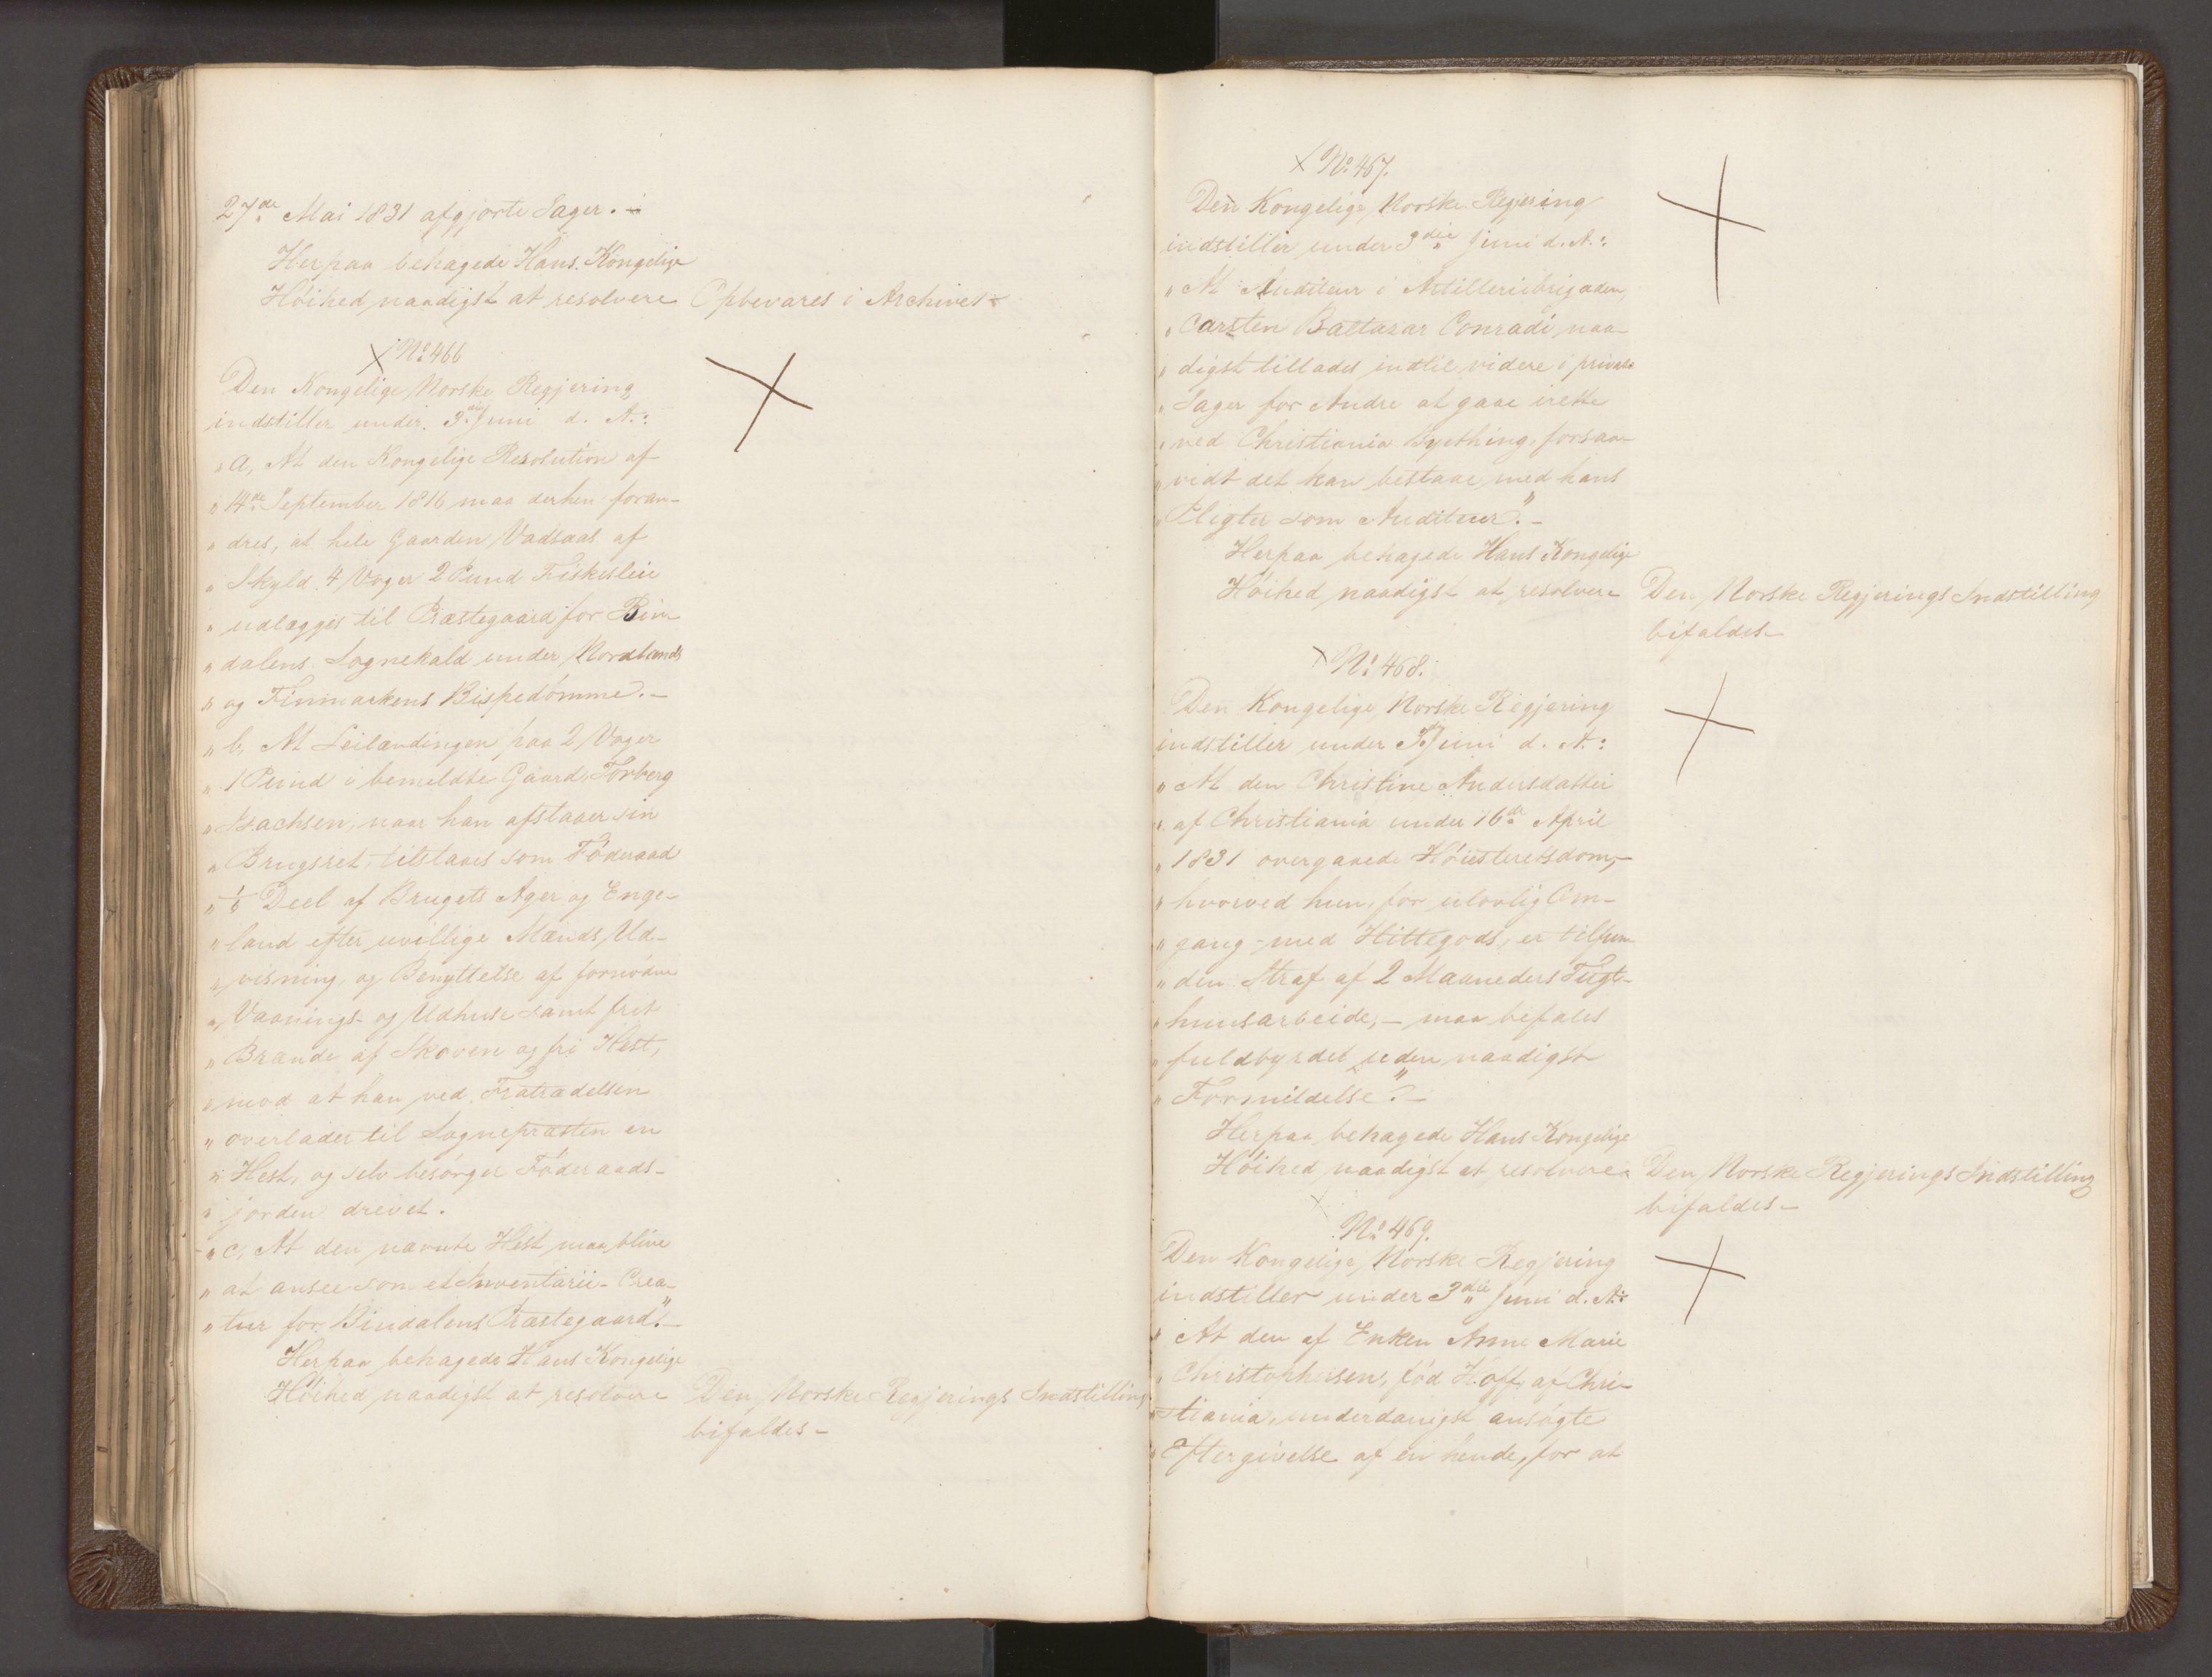 27de Mai 1831 afgjorte Sager. -
Herpaa behagede Hans Kongelige
Höihed naadigst at resolvere Opbevares i Archivet
No 466
Den Kongelige Norske Regjering
indstiller under 3die Juni d. A.:
" a, At den Kongelige Resolution af
" 14de September 1816 maa derhen foran-
" dres, at hele Gaarden Vadsaas af
" Skyld 4 Voger 2 Pund Fiskesleie
" udlægges til Præstegaard for Bin-
" dalens Sognekald under Nordlands
" og Finmarkens Bispedömme. -
" b, At Leilændingen paa 2 Voger
" 1 Pund i bemeldte Gaard, Torberg
" Isachsen, naar han afstaaer sin
" Brugsret, tilstaaes som Föderaad
" 1/6 Deel af Brugets Ager og Enge-
" land efter uvillige Mænds Ud-
" visning, og Benyttelse af fornödne
" Vaanings- og Udhuse samt frit
" Brænde af Skoven og fri Hest,
" mod at han ved Fratrædelsen
" overlader til Sognepræsten en
" Hest, og selv besörger Föderaads-
" jorden drevet.
" c, At den nævnte Hest maa blive
" at ansee som et Inventarii-Crea-
" tur for Bindalens Præstegaard". -
Herpaa behagede Hans Kongelige
Höihed naadigst at resolvere Den Norske Regjerings Indstilling
bifaldes -
No 467.
Den Kongelige Norske Regjering
indstiller under 3die Juni d. A.:
" At Auditeur i Artilleriebrigaden
" Carsten Baltazar Conradi naa-
" digst tillades indtil videre i private
" Sager for Andre at gaae irette
" ved Christiania Byething, forsaa-
" vidt det kan bestaae med hans
" Pligter som Auditeur". -
Herpaa behagede Hans Kongelige
Höihed naadigst at resolvere Den Norske Regjerings Indstilling
bifaldes
No 468.
Den Kongelige Norske Regjering
indstiller under 3die Juni d. A.:
" At den Christine Andersdatter
" af Christiania under 16de April
" 1831 overgaaede Höiesteretsdom, -
" hvorved hun, for ulovlig Om-
" gang med Hittegods, er tilfun-
" den Straf af 2 Maaneders Tugt-
" huusarbeide, - maa befales
" fuldbyrdet uden naadigst
" Formildelse". -
Herpaa behagede Hans Kongelige
Höihed naadigst at resolvere Den Norske Regjerings Indstilling
bifaldes -
No 469.
Den Kongelige Norske Regjering
indstiller under 3die Juni d. A.:
" At den af Enken Anne Marie
" Christophersen, föd Hoff, af Chri-
" stiania, underdanigst ansögte
" Eftergivelse af en hende, for at